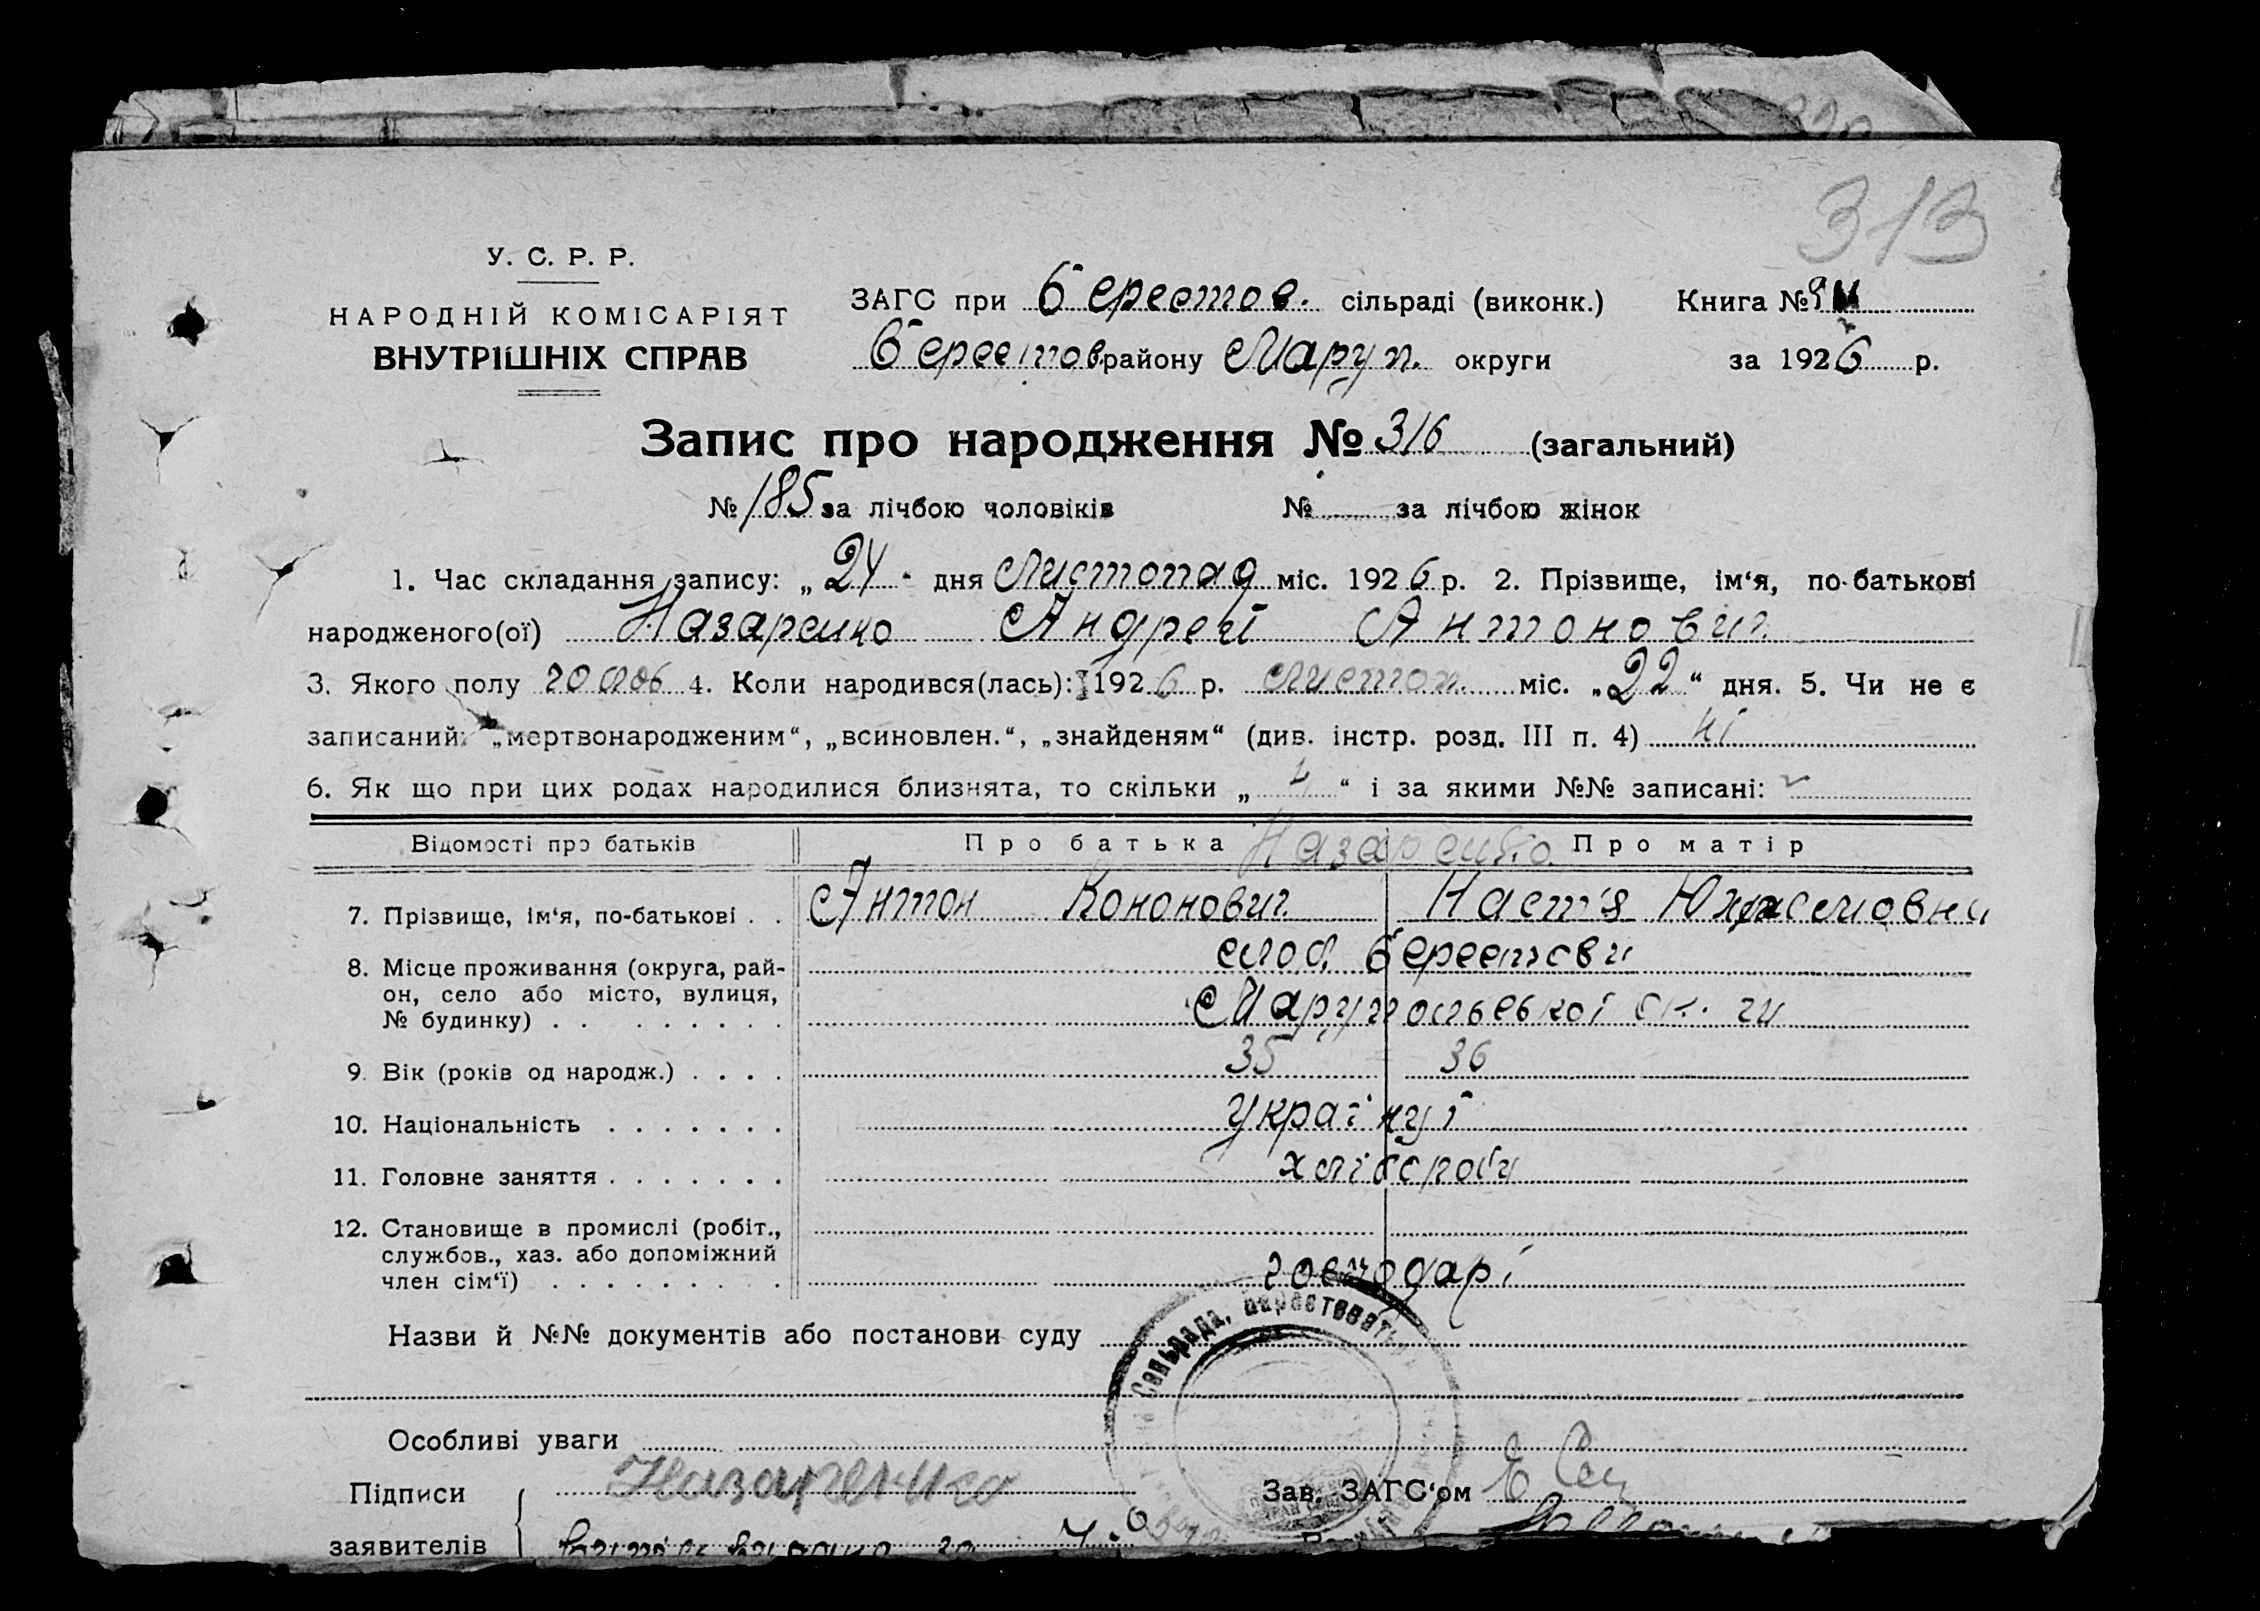 313
У. С. Р. Р.
НАРОДНІЙ КОМІСАРІЯТ
ВНУТРІШНІХ СПРАВ
ЗАГС при Берестов. сільраді (виконк.) Книга №
Берестов району Маруп. округи за 1926 р.
Запис про народження № 316 (загальний)
№ 185 за лічбою чоловіків № за лічбою жінок
1. Час складання запису: „ 24 дня Листопад міс. 1926 р. 2. Прізвище, ім‘я, по-батькові
народженого(ої) Назаренко Андрей Антонович
3. Якого полу 4. Коли народився(лась): 1926 р. листоп. міс. „22“ дня. 5. Чи не є
записаний: „мертвонародженим“, „всиновлен.“, „знайденям“ (див. інстр. розд. III п. 4) ні
6. Як що при цих родах народилися близнята, то скільки „ “ і за якими №№ записані:
Відомості про батьків Про батька Назаренко Про матір
7. Прізвище, ім‘я, по-батькові . . Антон Кононович Наст‘я
8. Місце проживання (округа, рай-
он, село або місто, вулиця,
№ будинку) . . . . . . . . .
слоб. Берестови
Марупольської ок.
9. Вік (років од народж.) . . . . 35 36
10. Національність . . . . . . .
11. Головне заняття . . . . . . . хлібороби
12. Становище в промислі (робіт.,
службов., хаз. або допоміжний
член сім‘ї) . . . . . . . . . господарі
Назви й №№ документів або постанови суду
Сельрада,
Особливі уваги
Підписи Назаренко Зав. ЗАГС‘ом
заявителів